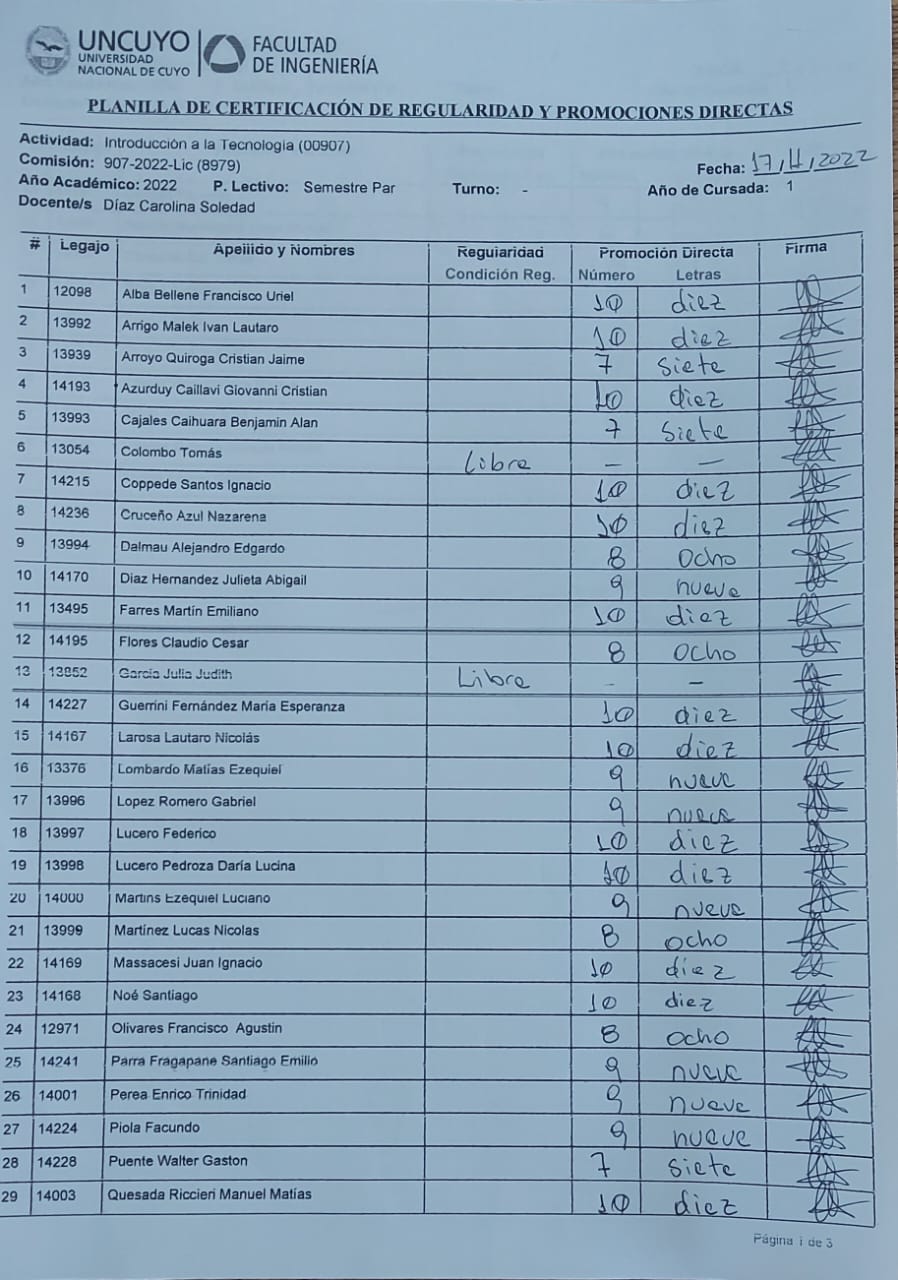 UNCUYO
UNIVERSIDAD
NACIONAL DE CUYO
FACULTAD
DE INGENIERÍA
PLANILLA DE CERTIFICACIÓN DE REGULARIDAD Y PROMOCIONES DIRECTAS
Actividad: Introducción a la Tecnologia (00907)
Comisión: 907-2022-Lic (8979)
Fecha: 17/11/2022
Año Académico: 2022 P. Lectivo: Semestre Par Turno: - Año de Cursada: 1
Docente/s Díaz Carolina Soledad
# Legajo Apellido y Nombres Regularidad Promoción Directa Firma
Condición Reg. Número Letras
1 12098 Alba Bellene Francisco Uriel 10 diez
2 13992 Arrigo Malek Ivan Lautaro 10 diez
3 13939 Arroyo Quiroga Cristian Jaime 7 siete
4 14193 Azurduy Caillavi Giovanni Cristian 10 diez
5 13993 Cajales Caihuara Benjamin Alan 7 siete
6 13054 Colombo Tomás Libre — —
7 14215 Coppede Santos Ignacio 10 diez
8 14236 Cruceño Azul Nazarena 10 diez
9 13994 Dalmau Alejandro Edgardo 8 ocho
10 14170 Diaz Hernandez Julieta Abigail 9 nueve
11 13495 Farres Martín Emiliano 10 diez
12 14195 Flores Claudio Cesar 8 ocho
13 13852 Garcia Julia Judith Libre - —
14 14227 Guerrini Fernández María Esperanza 10 diez
15 14167 Larosa Lautaro Nicolás 10 diez
16 13376 Lombardo Matías Ezequiel 9 nueve
17 13996 Lopez Romero Gabriel 9 nueve
18 13997 Lucero Federico 10 diez
19 13998 Lucero Pedroza Daría Lucina 10 diez
20 14000 Martins Ezequiel Luciano 9 nueve
21 13999 Martínez Lucas Nicolas 8 ocho
22 14169 Massacesi Juan Ignacio 10 diez
23 14168 Noé Santiago 10 diez
24 12971 Olivares Francisco Agustin 8 ocho
25 14241 Parra Fragapane Santiago Emilio 9 nueve
26 14001 Perea Enrico Trinidad 9 nueve
27 14224 Piola Facundo 9 nueve
28 14228 Puente Walter Gaston 7 siete
29 14003 Quesada Riccieri Manuel Matías 10 diez
Página 1 de 3